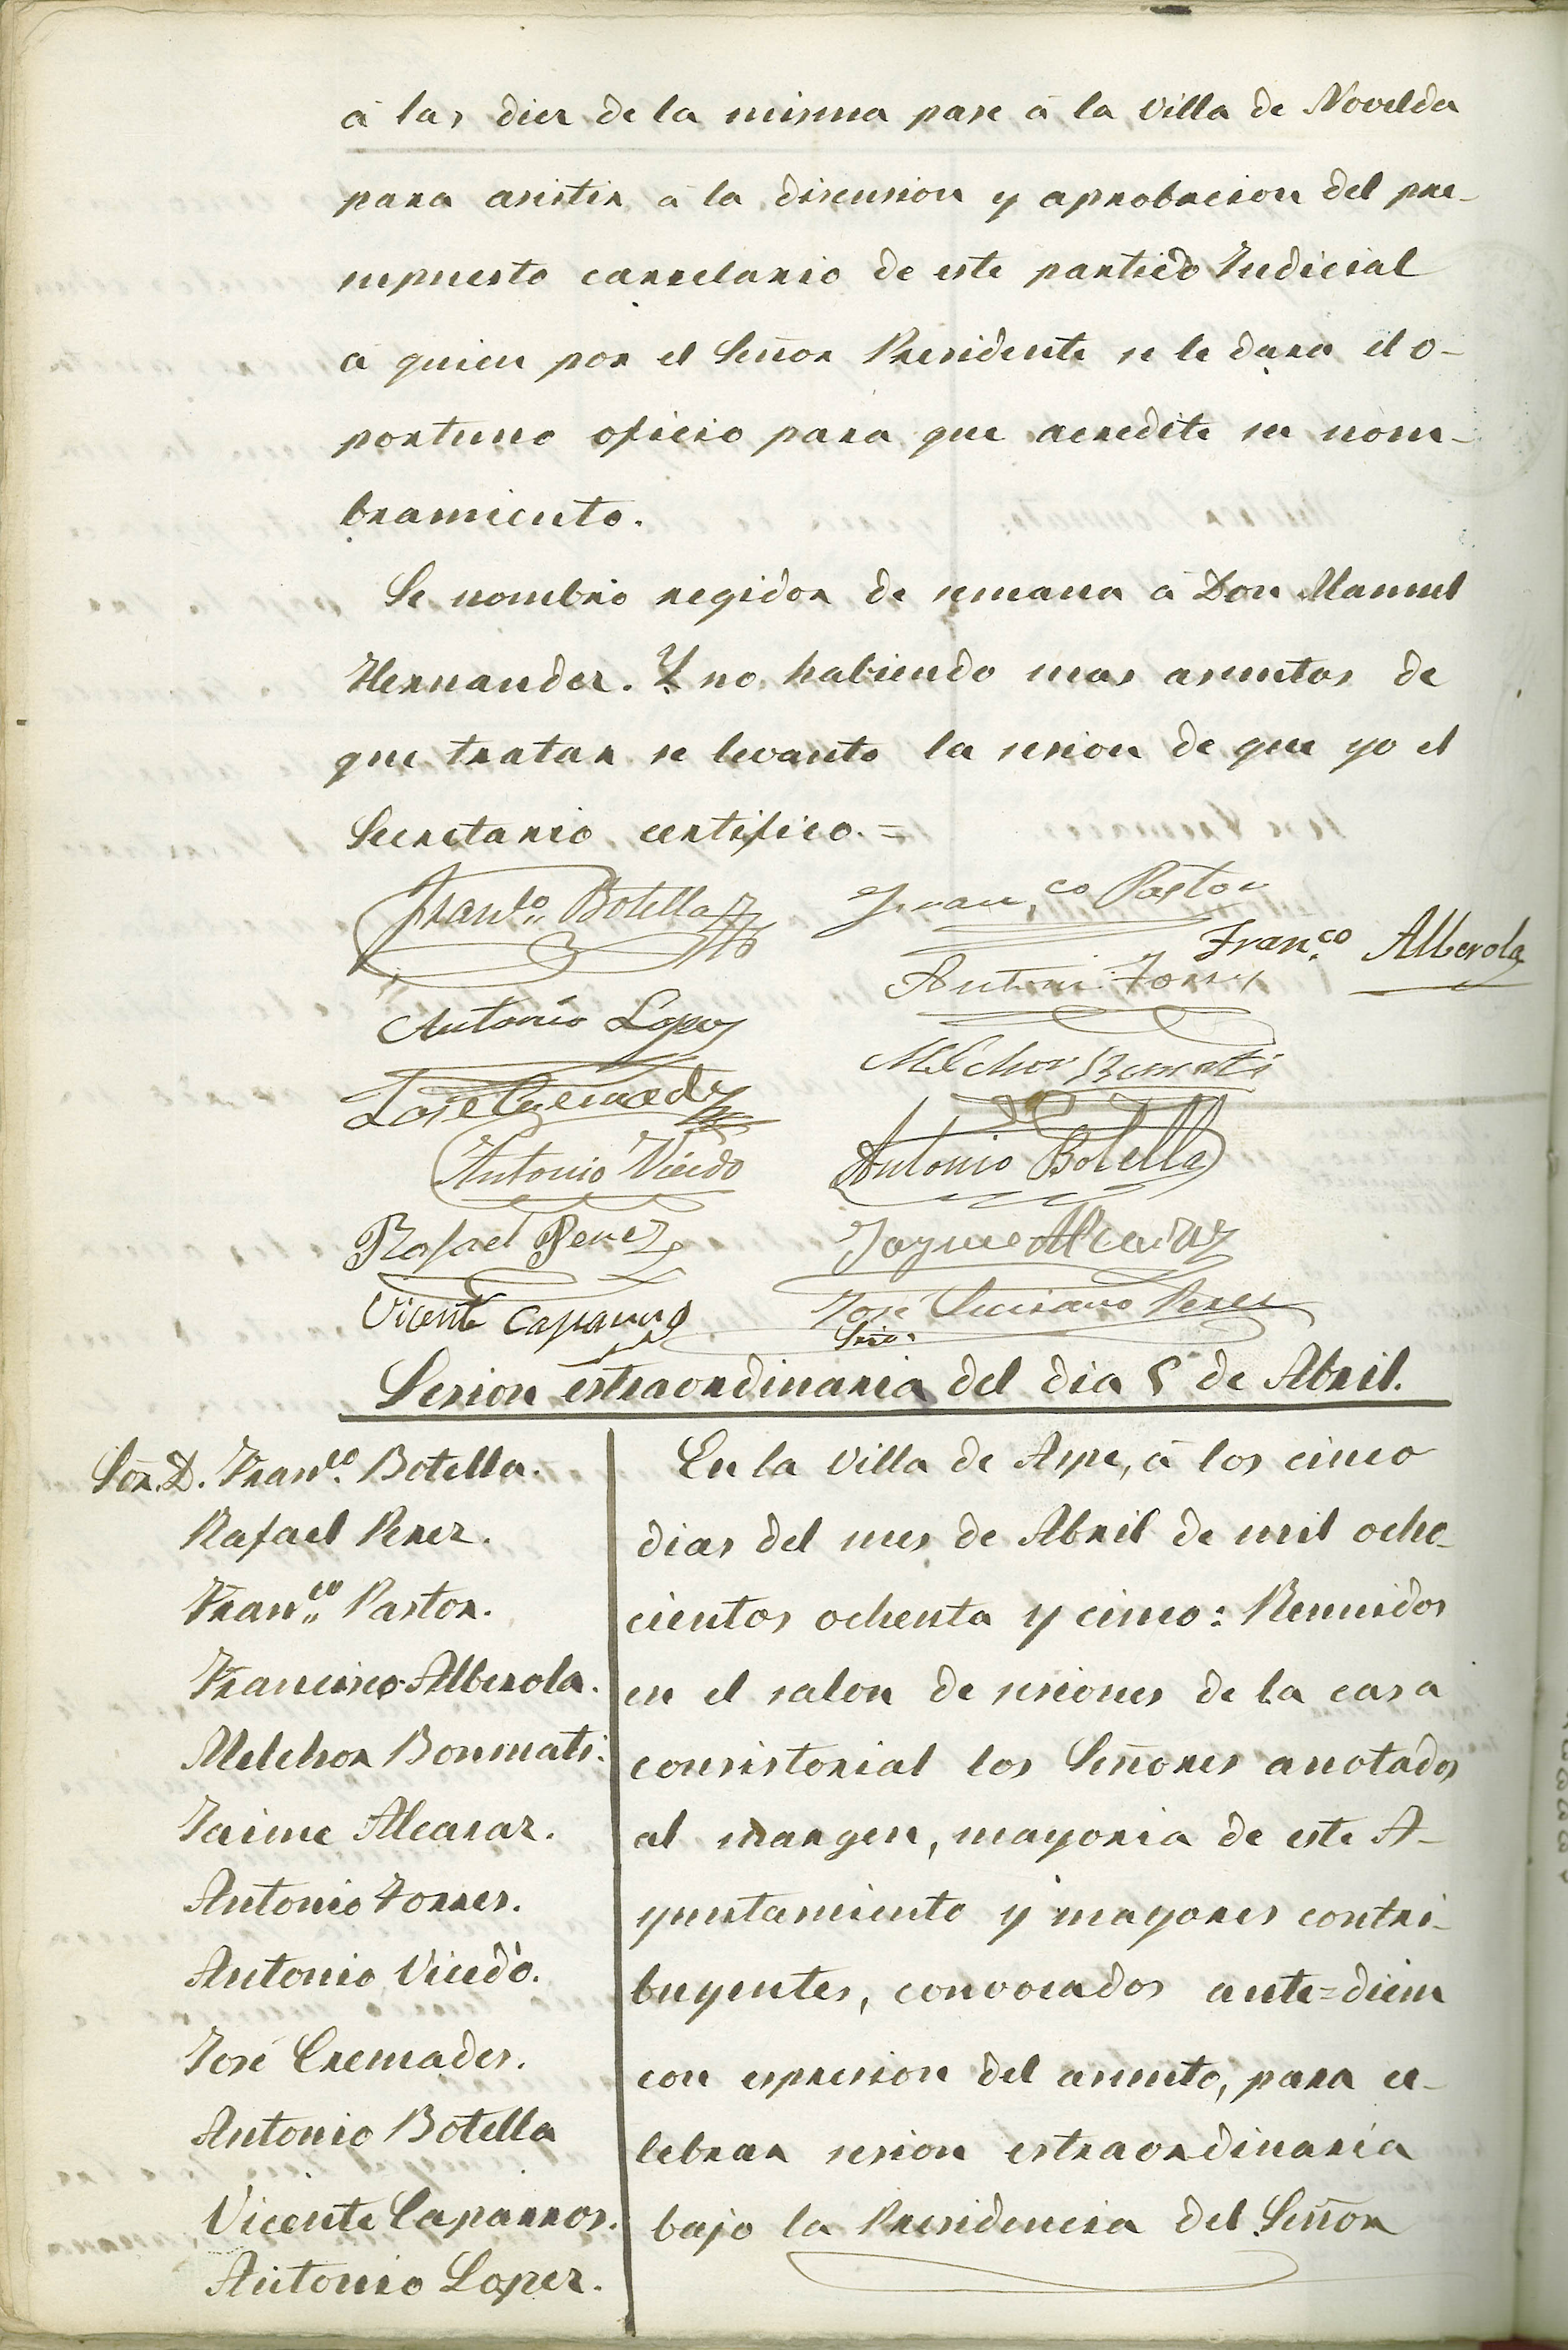 á las diez de la misma pase á la villa de Novelda
para asistir á la discusion y aprobacion del pre-
supuesto carcelario de este partido Judicial
á quien por el Señor Presidente se le dara el o-
portuno oficio para que acredite su nom-
bramiento.
Se nombró regidor de semana á Don Manuel
Hernandez. Y no habiendo mas asuntos de
que tratar se levantó la sesion de que yo el
Secretario certifico.=
Franco. Botella
Franco Pastor
Franco Alberola
Antonio Torres
Antonio Lopez
Melchor Bonmati
José Cremades
Antonio Vicedo
Antonio Botella
Rafael Perez
Jayme Alcaraz
Vicente Caparros
José Luciano Perez
Srio.
Sesion estraordinaria del dia 5 de Abril.
Sor. D. Franco. Botella.
Rafael Perez.
Franco. Pastor.
Francisco Alberola.
Melchor Bonmati.
Jaime Alcaraz.
Antonio Torres.
Antonio Vicedo.
José Cremades.
Antonio Botella
Vicente Caparros.
Antonio Lopez.
En la villa de Aspe, á los cinco
dias del mes de Abril de mil ocho-
cientos ochenta y cinco: Reunidos
en el salon de sesiones de la casa
consistorial los Señores anotados
al margen, mayoria de este A-
yuntamiento y mayores contri-
buyentes, convocados ante=diem
con espresion del asunto, para ce-
lebrar sesion estraordinaria
bajo la Presidencia del Señor